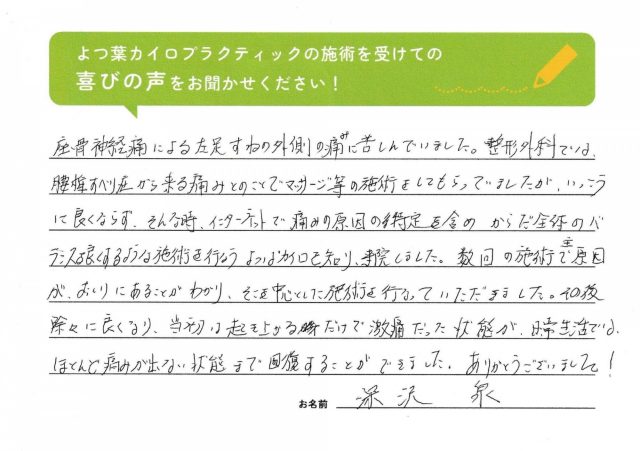 よつ葉カイロプラクティックの施術を受けての
喜びの声をお聞かせください！
座骨神経痛による左足すねの外側の痛みに苦しんでいました。整形外科では、
腰椎すべり症から来る痛みとのことでマッサージ等の施術をしてもらっていましたが、いっこう
に良くならず、そんな時、インターネットで痛みの原因の特定を含め からだ全体のバ
ランスを良くするような施術を行なう よつばカイロを知り、来院しました。数回の施術で主原因
が、おしりにあることがわかり、そこを中心とした施術を行なっていただきました。その後
除々に良くなり、当初は起き上がる時だけで激痛だった状態が、日常生活では、
ほとんど痛みが出ない状態まで回復することができました。ありがとうございました！
お名前 深沢